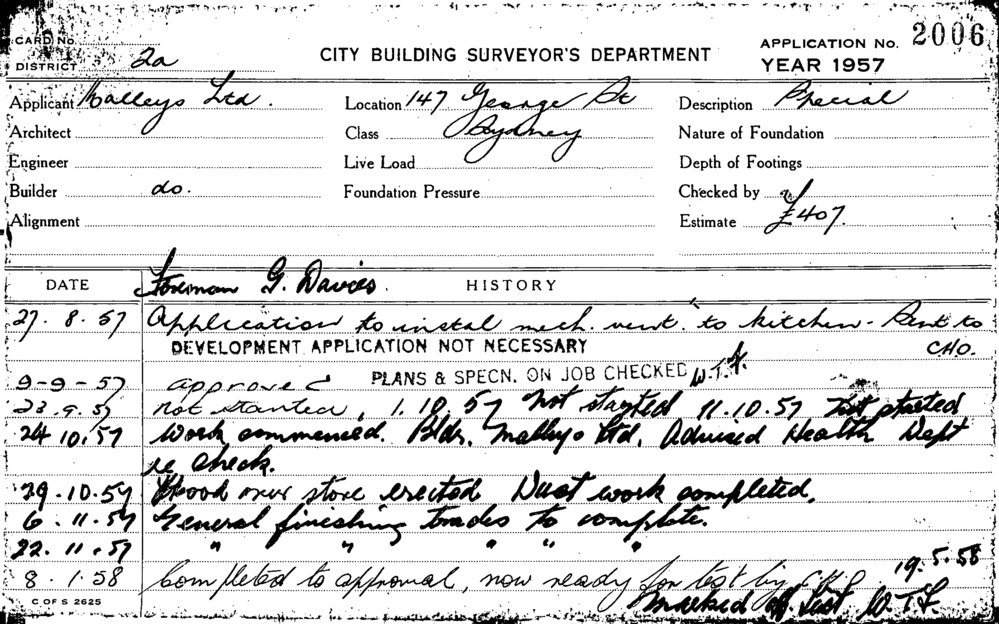 CARD No.
DISTRICT 2a
CITY BUILDING SURVEYOR'S DEPARTMENT
APPLICATION No. 2006
YEAR 1957
Applicant Malleys Ltd. Location 147 George St Description Special
Architect Class Sydney Nature of Foundation
Engineer Live Load Depth of Footings
Builder do. Foundation Pressure Checked by
Alignment Estimate £407.
DATE Foreman G. Davies. HISTORY
27. 8. 57 Application to instal mech. vent. to kitchen - Sent to
DEVELOPMENT APPLICATION NOT NECESSARY CHO.
9-9-57 approved PLANS & SPECN. ON JOB CHECKED W.T.F.
23.9.57 not started, 1.10.57 Not started 11.10.57 Not started
24 10.57 Work commenced. Bldr. Malleys Ltd. Advised Health Dept
re check.
29.10.57 Hood over stove erected Duct work completed.
6.11.57 General finishing trades to complete.
22.11.57 " " " " "
8.1.58 Completed to approval, now ready for test by 19.5.58
Marked off List W.T.F.
C OF S 2625